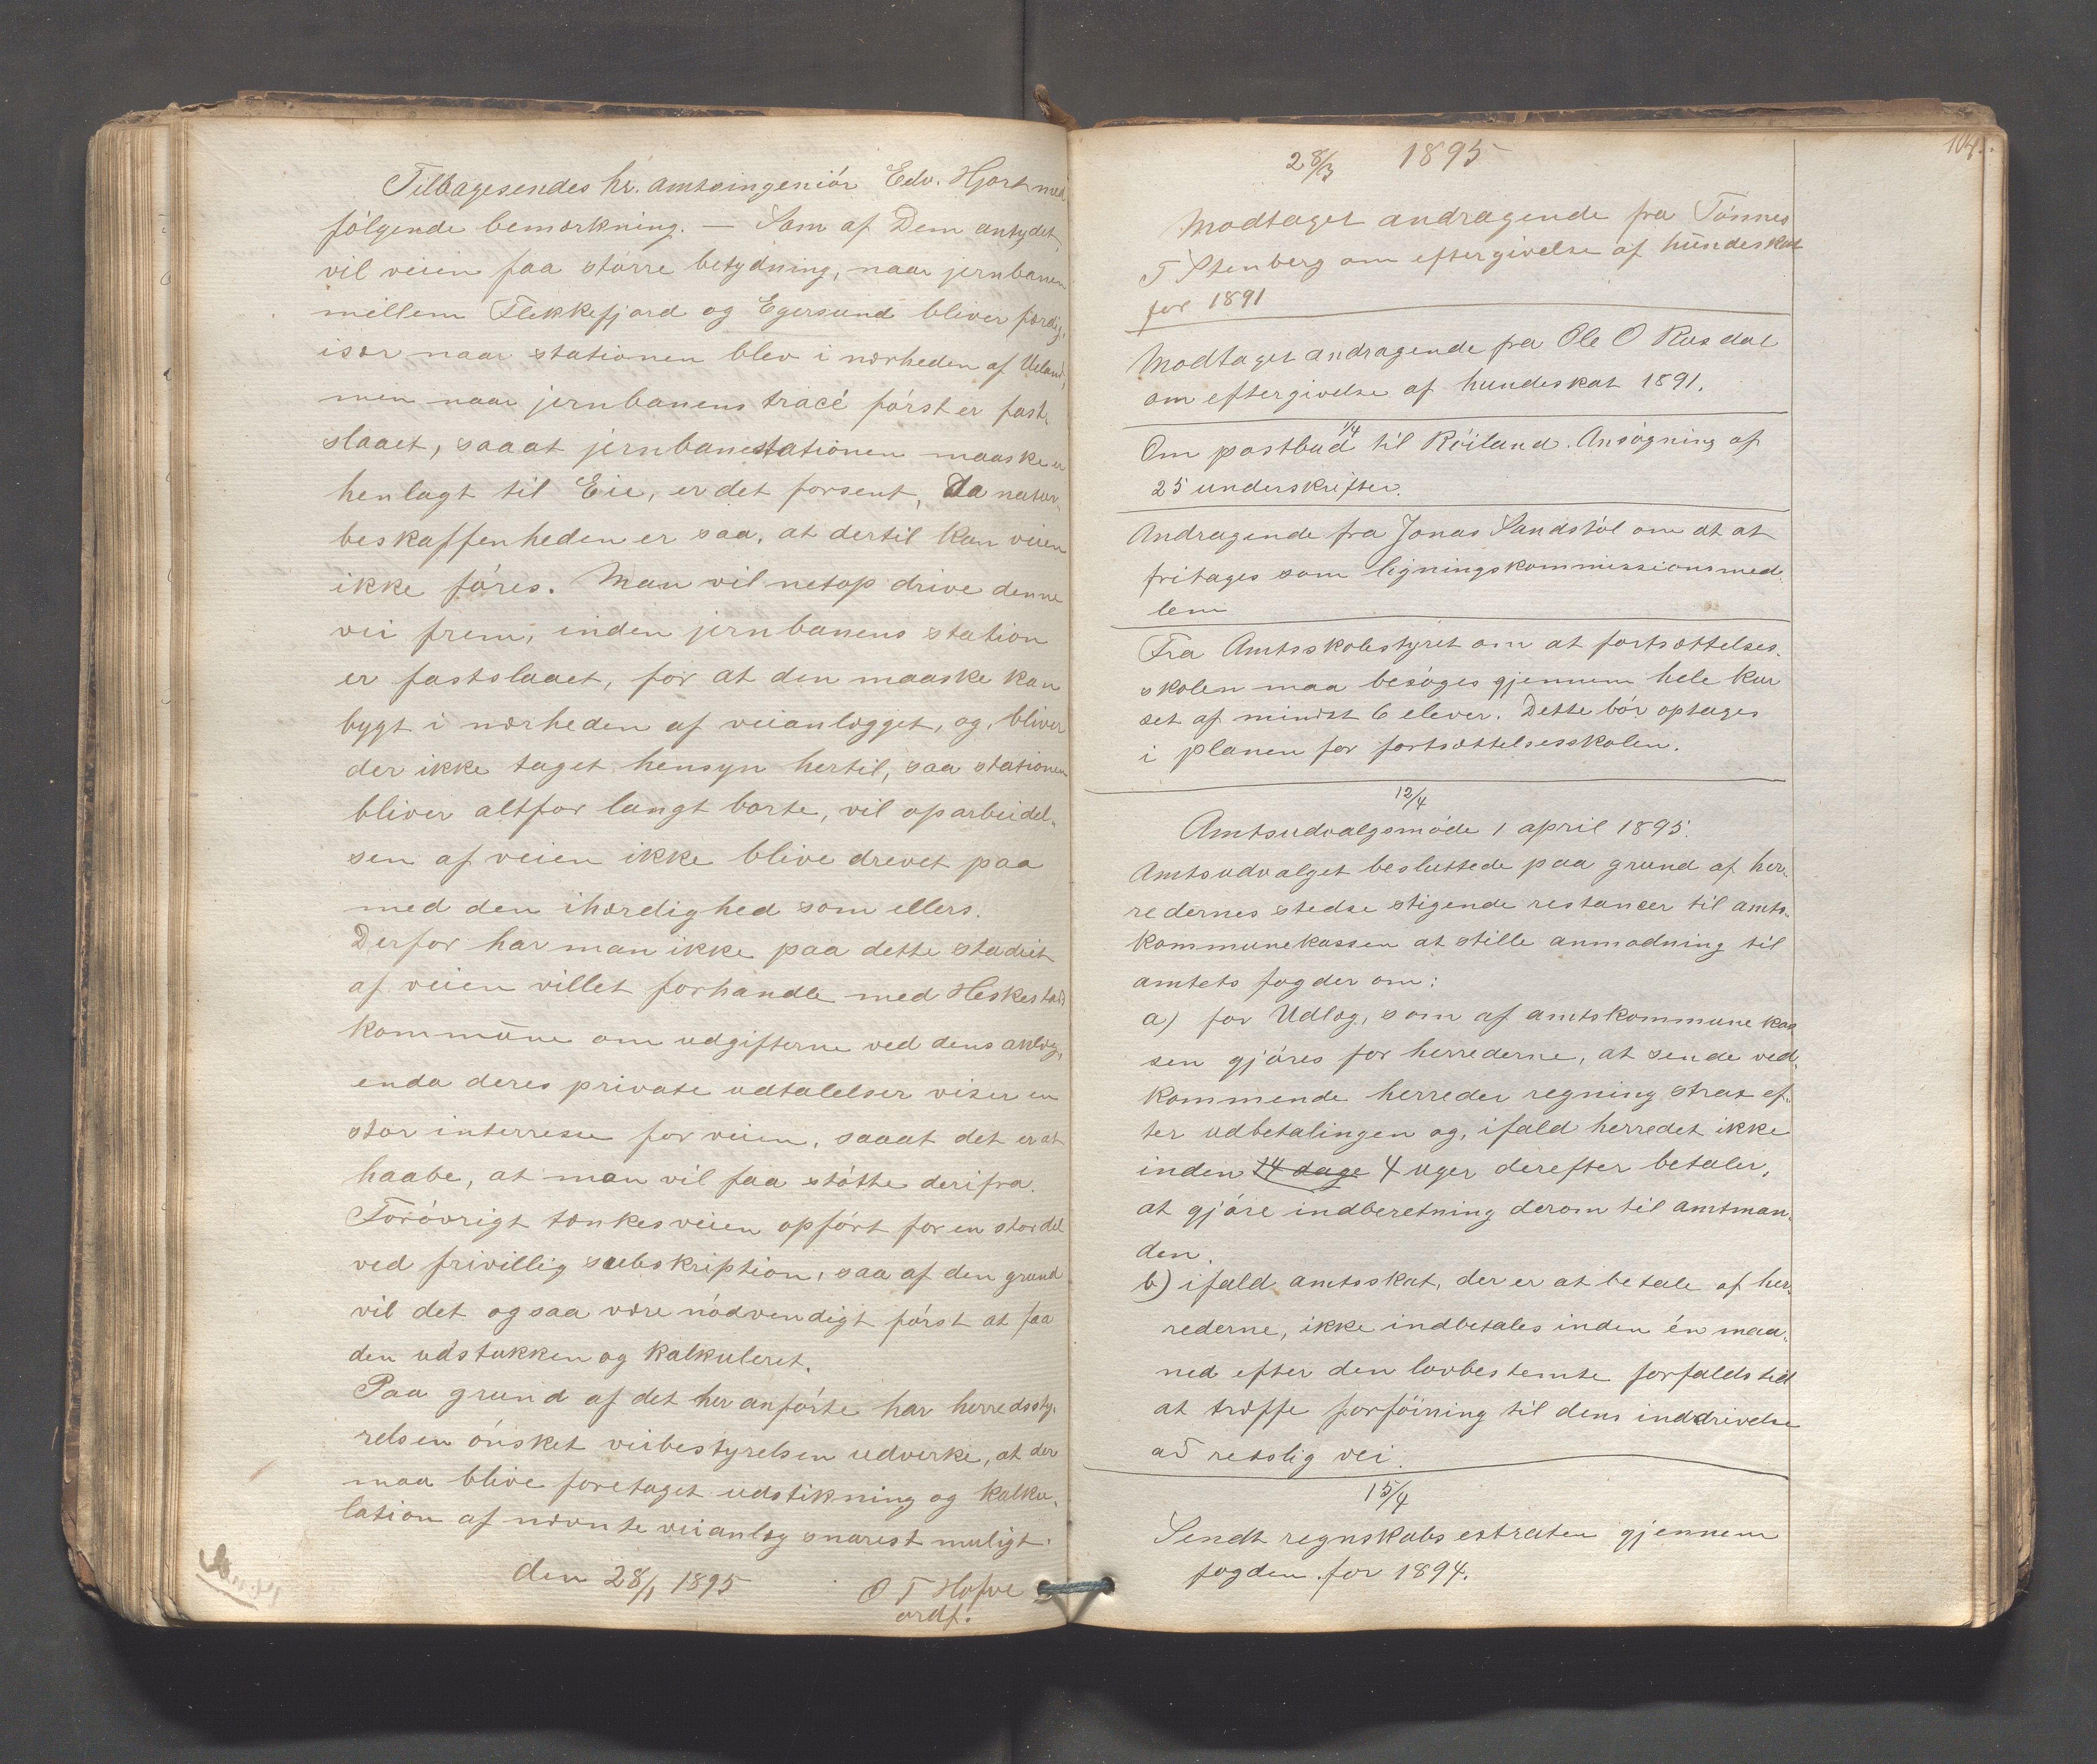 Tilbagesendes hr. amtsingeniør Edv. Hjort med
følgende bemærkning. — Som af Dem antydet,
vil veien faa større betydning, naar jernbanen
mellem Flekkefjord og Egersund bliver færdig,
især naar stationen blev i nærheden af Ueland,
men naar jernbanens tracé først er fast-
slaaet, saaat jernbanestationen maaske er
henlagt til Eie, er det forsent, da natur-
beskaffenheden er saa, at dertil kan veien
ikke føres. Man vil netop drive denne
vei frem, inden jernbanens station
er fastslaaet, for at den maaske kan
bygt i nærheden af veianlægget, og, bliver
der ikke taget hensyn hertil, saa stationen
bliver altfor langt borte, vil oparbeidel-
sen af veien ikke blive drevet paa
med den ihærdighed som ellers.
Derfor har man ikke paa dette stadiet
af veien villet forhandle med Heskestad
kommune om udgifterne ved dens anlæg,
enda deres private udtalelser viser en
stor interresse for veien, saaat det er at
haabe, at man vil faa støtte derifra.
Forøvrigt tænkes veien opført for en stor del
ved frivillig subskription, saa af den grund
vil det ogsaa være nødvendigt først at faa
den udstukken og kalkuleret.
Paa grund af det her anførte har herredssty-
relsen ønsket veibestyrelsen udvirke, at der
maa blive foretaget udstikning og kalku-
lation af nævnte veianlæg snarest muligt.
den 28/1 1895
O T Hofve
ordf.
104.
28/3 1895
Modtaget andragende fra Tønnes
T Stenberg om eftergivelse af hundeskat
for 1891
Modtaget andragende fra Ole O Rusdal
om eftergivelse af hundeskat 1891.
1/4
Om postbud til Röiland. Ansøgning af
25 underskrifter.
Andragende fra Jonas Sandstøl om at at
fritages som ligningskommissionsmed-
lem
Fra Amtsskolestyret om at fortsættelses-
skolen maa besøges gjennem hele kur
set af mindst 6 elever. Dette bør optages
i planen for fortsættelsesskolen.
12/4
Amtsudvalgsmøde 1 april 1895.
Amtsudvalget besluttede paa grund af her-
redernes stedse stigende restancer til amts-
kommunekassen at stille anmodning til
amtets fogder om:
a) for Udlæg, som af amtskommunekas
sen gjøres for herrederne, at sende ved-
kommende herreder regning strax ef-
ter udbetalingen og, ifald herredet ikke
inden 14 dage 4 uger derefter betaler,
at gjøre indberetning derom til amtman-
den.
b) ifald amtsskat, der er at betale af her-
rederne, ikke indbetales inden én maa-
ned efter den lovbestemte forfaldstid
at træffe forføining til dens inddrivelse
ad retslig vei.
15/4
Sendt regnskabsextrakten gjennem
fogden for 1894.